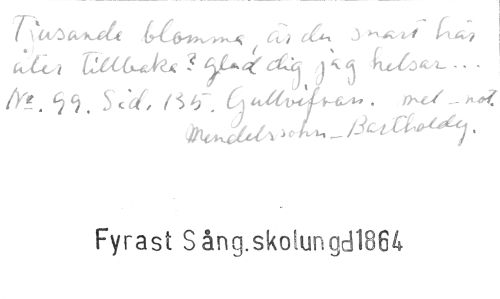 Tjusande blomma, är du snart här
åter tillbaka? glad dig jag helsar...
No. 99. Sid. 135. Gullvifvan. mel-not.
Mendelssohn-Bartholdy.
Fyrast Sång.skolungd1864